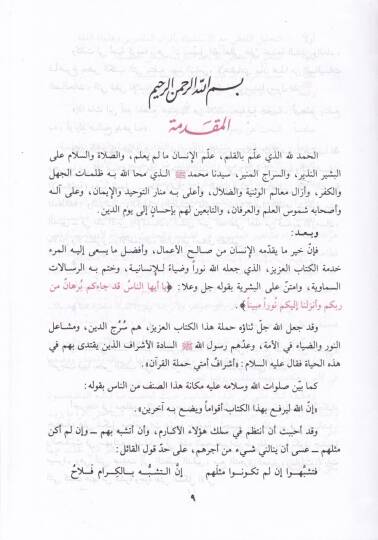 بسم الله الرحمن الرحيم
المقدمة
الحمد لله الذي علّم بالقلم، علّم الإنسان ما لم يعلم، والصلاة والسلام على
البشير النذير، والسراج المنير، سيدنا محمد ﷺ الذي محا الله به ظلمات الجهل
والكفر، وأزال معالم الوثنية والضلال، وأعلى به منار التوحيد والإيمان، وعلى آله
وأصحابه شموس العلم والعرفان، والتابعين لهم بإحسانٍ إلى يوم الدين.
وبعد:
فإنّ خير ما يقدّمه الإنسان من صالح الأعمال، وأفضل ما يسعى إليه المرء
خدمة الكتاب العزيز، الذي جعله الله نوراً وضياءً للإنسانية، وختم به الرسالات
السماوية، وامتنّ على البشرية بقوله جل وعلا: ﴿يا أيها الناسُ قد جاءكم بُرهانٌ من
ربكم وأنزلنا إليكم نُوراً مبيناً﴾.
وقد جعل الله جلّ ثناؤه حملة هذا الكتاب العزيز، هم سُرُج الدين، ومشاعل
النور والضياء في الأمة، وعدّهم رسول الله ﷺ السادة الأشراف الذين يقتدى بهم في
هذه الحياة فقال عليه السلام: «أشراف أمتي حملة القرآن».
كما بيّن صلوات الله وسلامه عليه مكانة هذا الصنف من الناس بقوله:
«إنّ الله ليرفع بهذا الكتاب أقواماً ويضع به آخرين».
وقد أحببت أن أنتظم في سلك هؤلاء الأكارم، وأن أتشبه بهم ــ وإن لم أكن
مثلهم ــ عسى أن ينالني شيء من أجرهم، على حدّ قول القائل:
فتشبَّهوا إن لم تكونوا مثلهم إنَّ التشبُّه بالكِرام فَلاحُ
٩